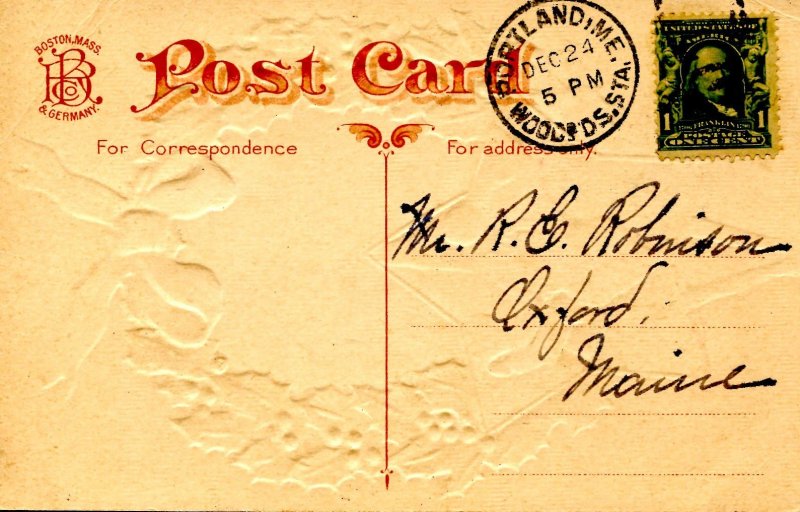 BOSTON, MASS.
& GERMANY.
Post Card
PORTLAND, ME.
DEC 24
5 PM
WOODF'DS. STA.
1 1
FRANKLIN
POSTAGE
ONE CENT
For Correspondence
For address only.
Mr. R. E. Robinson
Oxford,
Maine